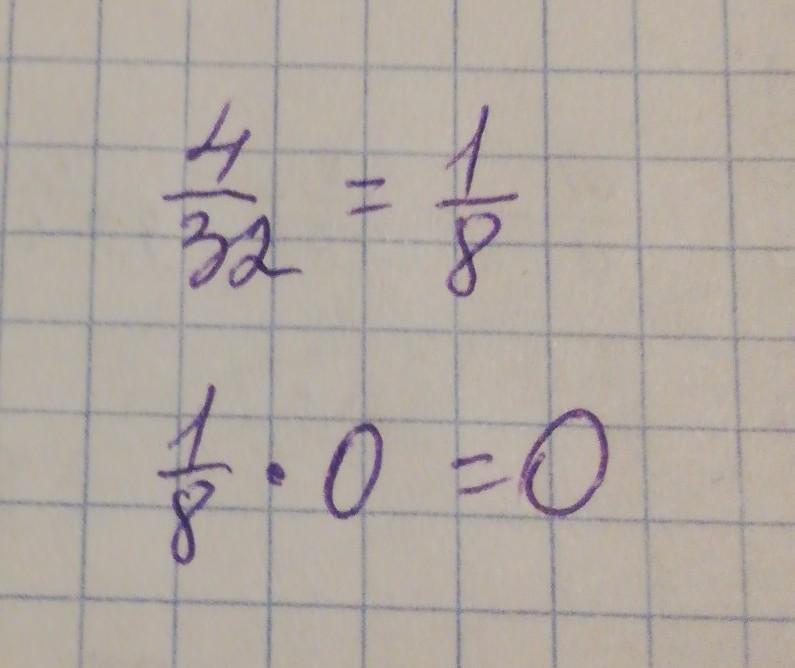 4/32 = 1/8
1/8 · 0 = 0